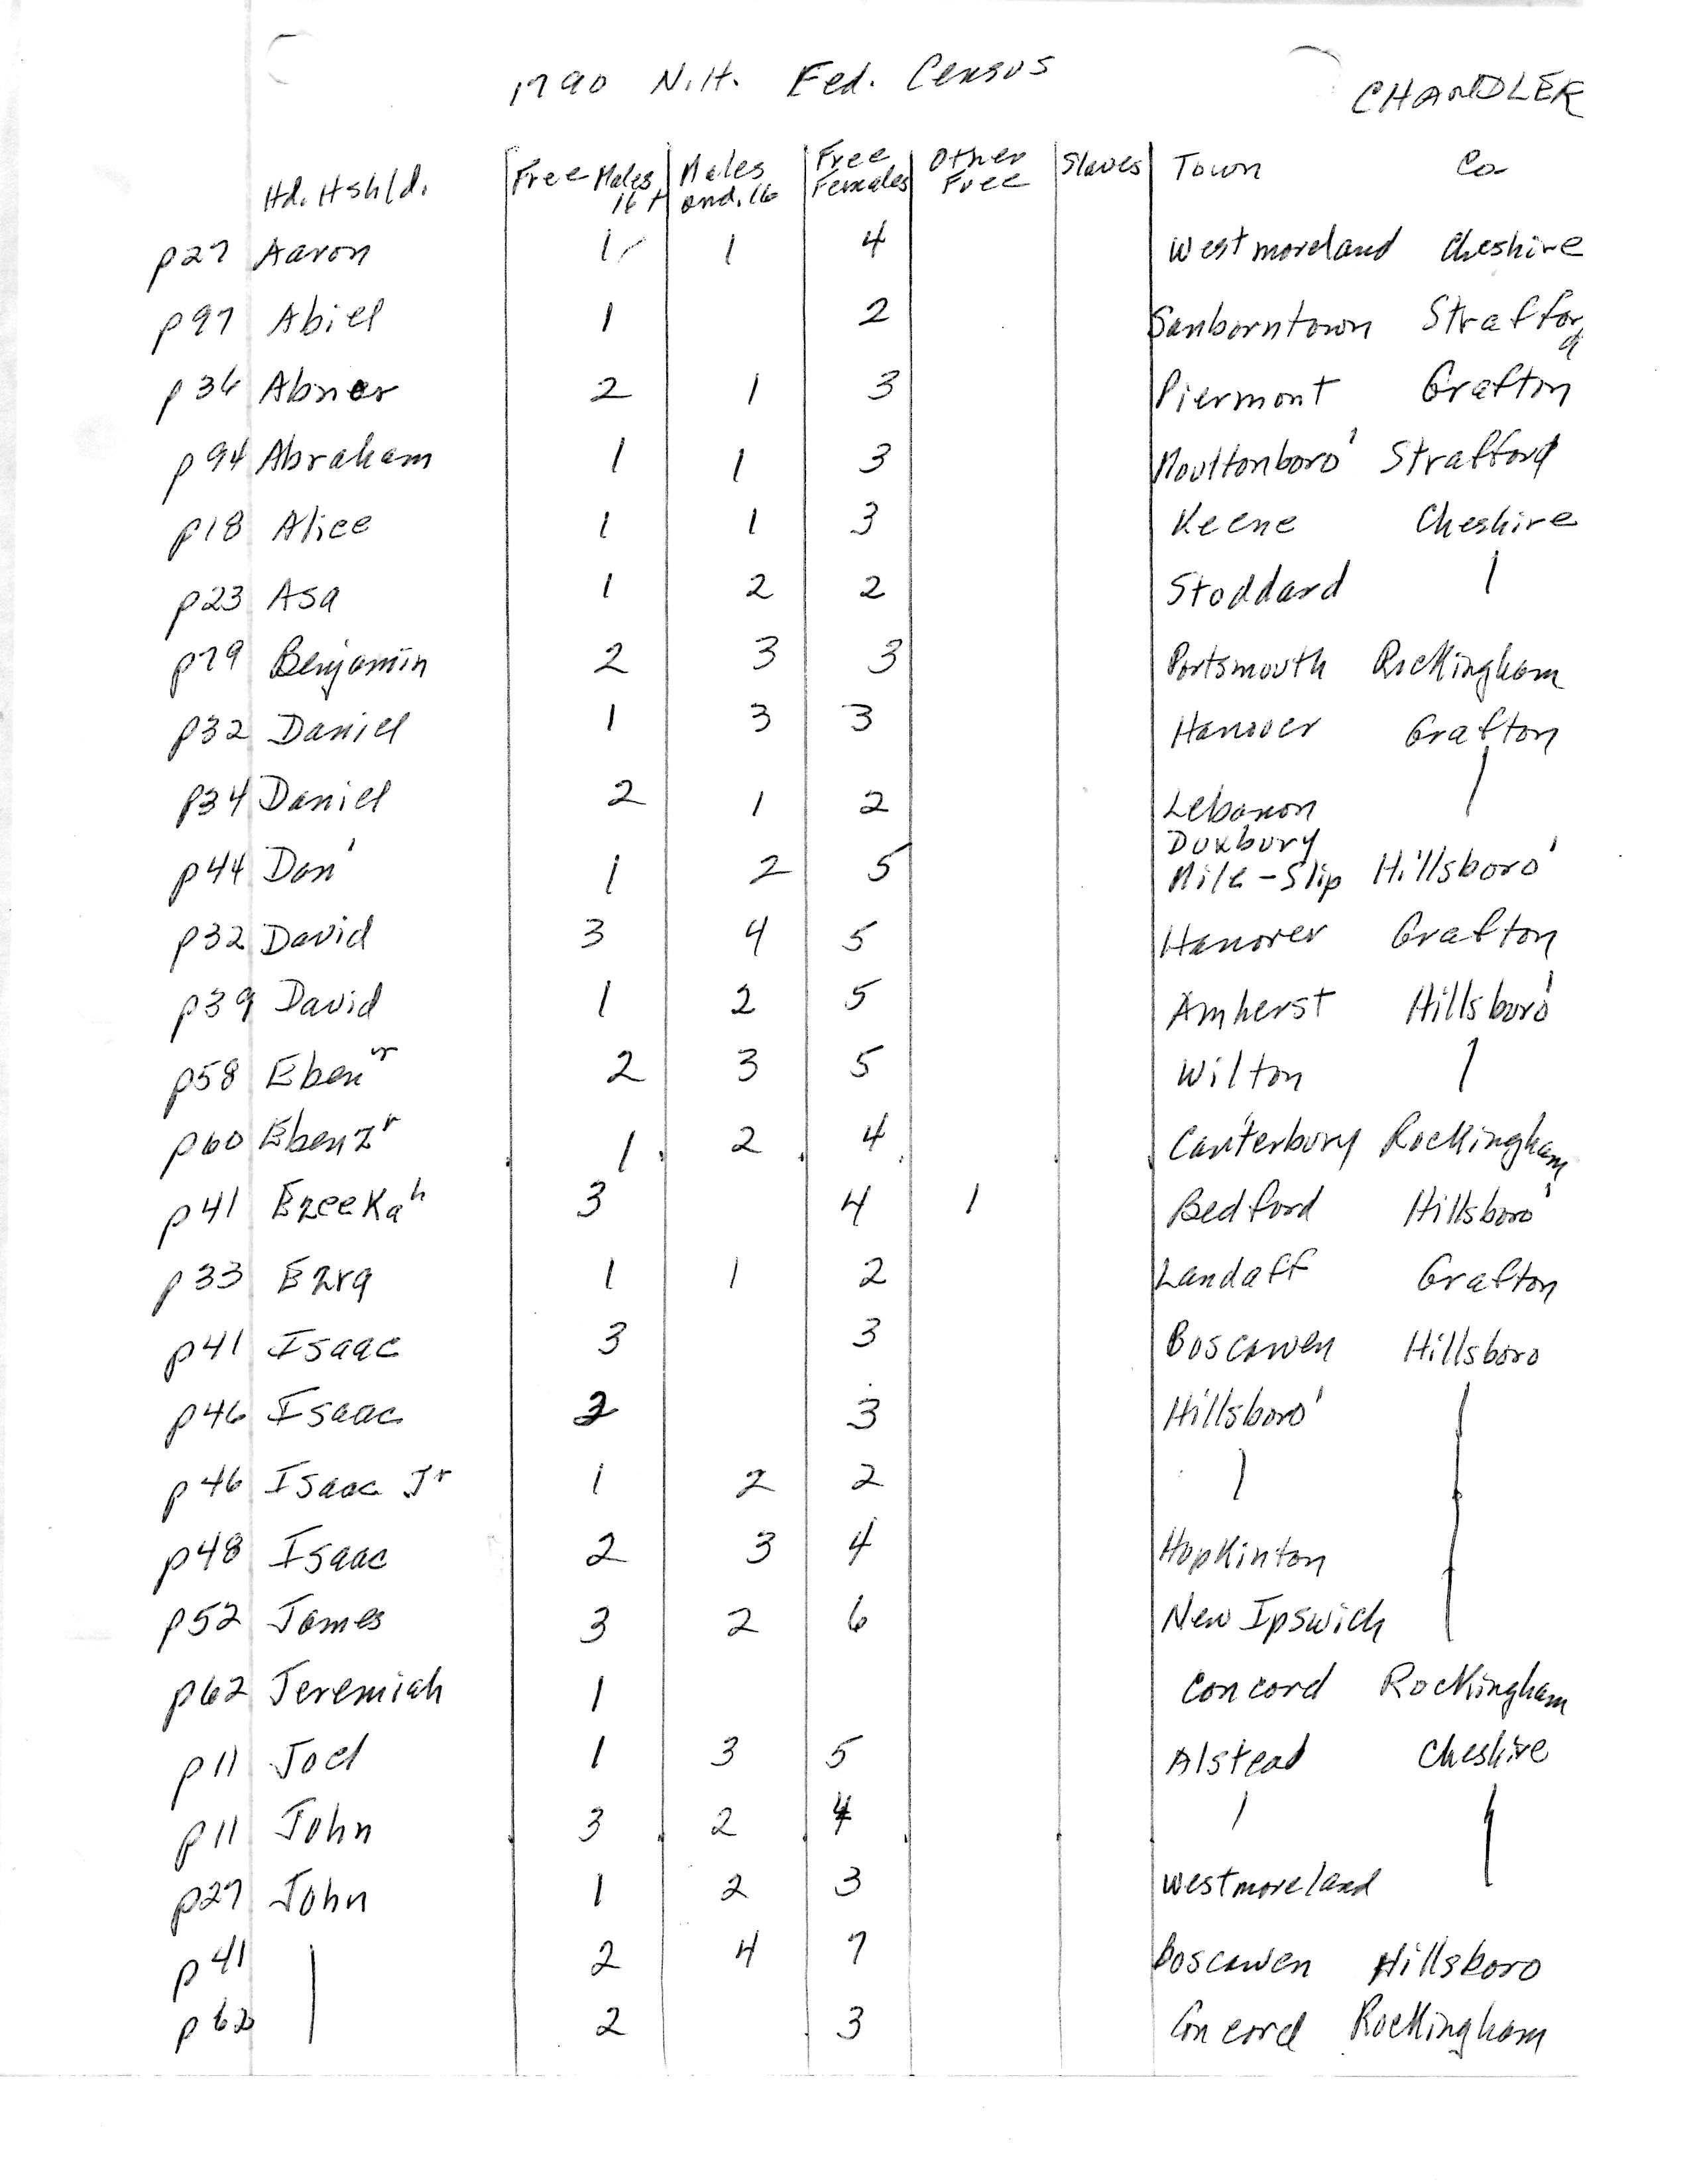 1790 N.H. Fed. Census CHANDLER
Hd. Hshld. Free Males 16+ Males und. 16 Free Females Other Free Slaves Town Co.
p27 Aaron 1 1 4 Westmoreland Cheshire
p97 Abiel 1 2 Sanborntown Strafford
p36 Abner 2 1 3 Piermont Grafton
p94 Abraham 1 1 3 Moultonboro' Strafford
p18 Alice 1 1 3 Keene Cheshire
p23 Asa 1 2 2 Stoddard |
p79 Benjamin 2 3 3 Portsmouth Rockingham
p32 Daniel 1 3 3 Hanover Grafton
p34 Daniel 2 1 2 Lebanon |
p44 Dan' 1 2 5 Duxbury Mile-Slip Hillsboro'
p32 David 3 4 5 Hanover Grafton
p39 David 1 2 5 Amherst Hillsboro'
p58 Eben'r 2 3 5 Wilton |
p60 Ebenzr 1 2 4 Canterbury Rockingham
p41 Ezeekah 3 4 1 Bedford Hillsboro'
p33 Ezra 1 1 2 Landaff Grafton
p41 Isaac 3 3 Boscawen Hillsboro
p46 Isaac 2 3 Hillsboro' |
p46 Isaac Jr 1 2 2 | |
p48 Isaac 2 3 4 Hopkinton |
p52 James 3 2 6 New Ipswich |
p62 Jeremiah 1 Concord Rockingham
p11 Joel 1 3 5 Alstead Cheshire
p11 John 3 2 4 | |
p27 John 1 2 3 Westmoreland |
p41 | 2 4 7 Boscawen Hillsboro
p62 | 2 3 Concord Rockingham